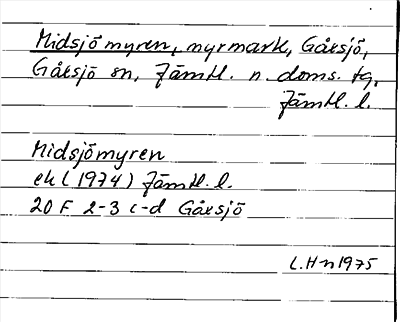 Midsjömyren, myrmark, Gåxsjö,
Gåxsjö sn, Jämtl. n. doms. tg,
Jämtl. l.
Midsjömyren
ek (1974) Jämtl. l.
20 F 2-3 c-d Gåxsjö
L.H-n 1975